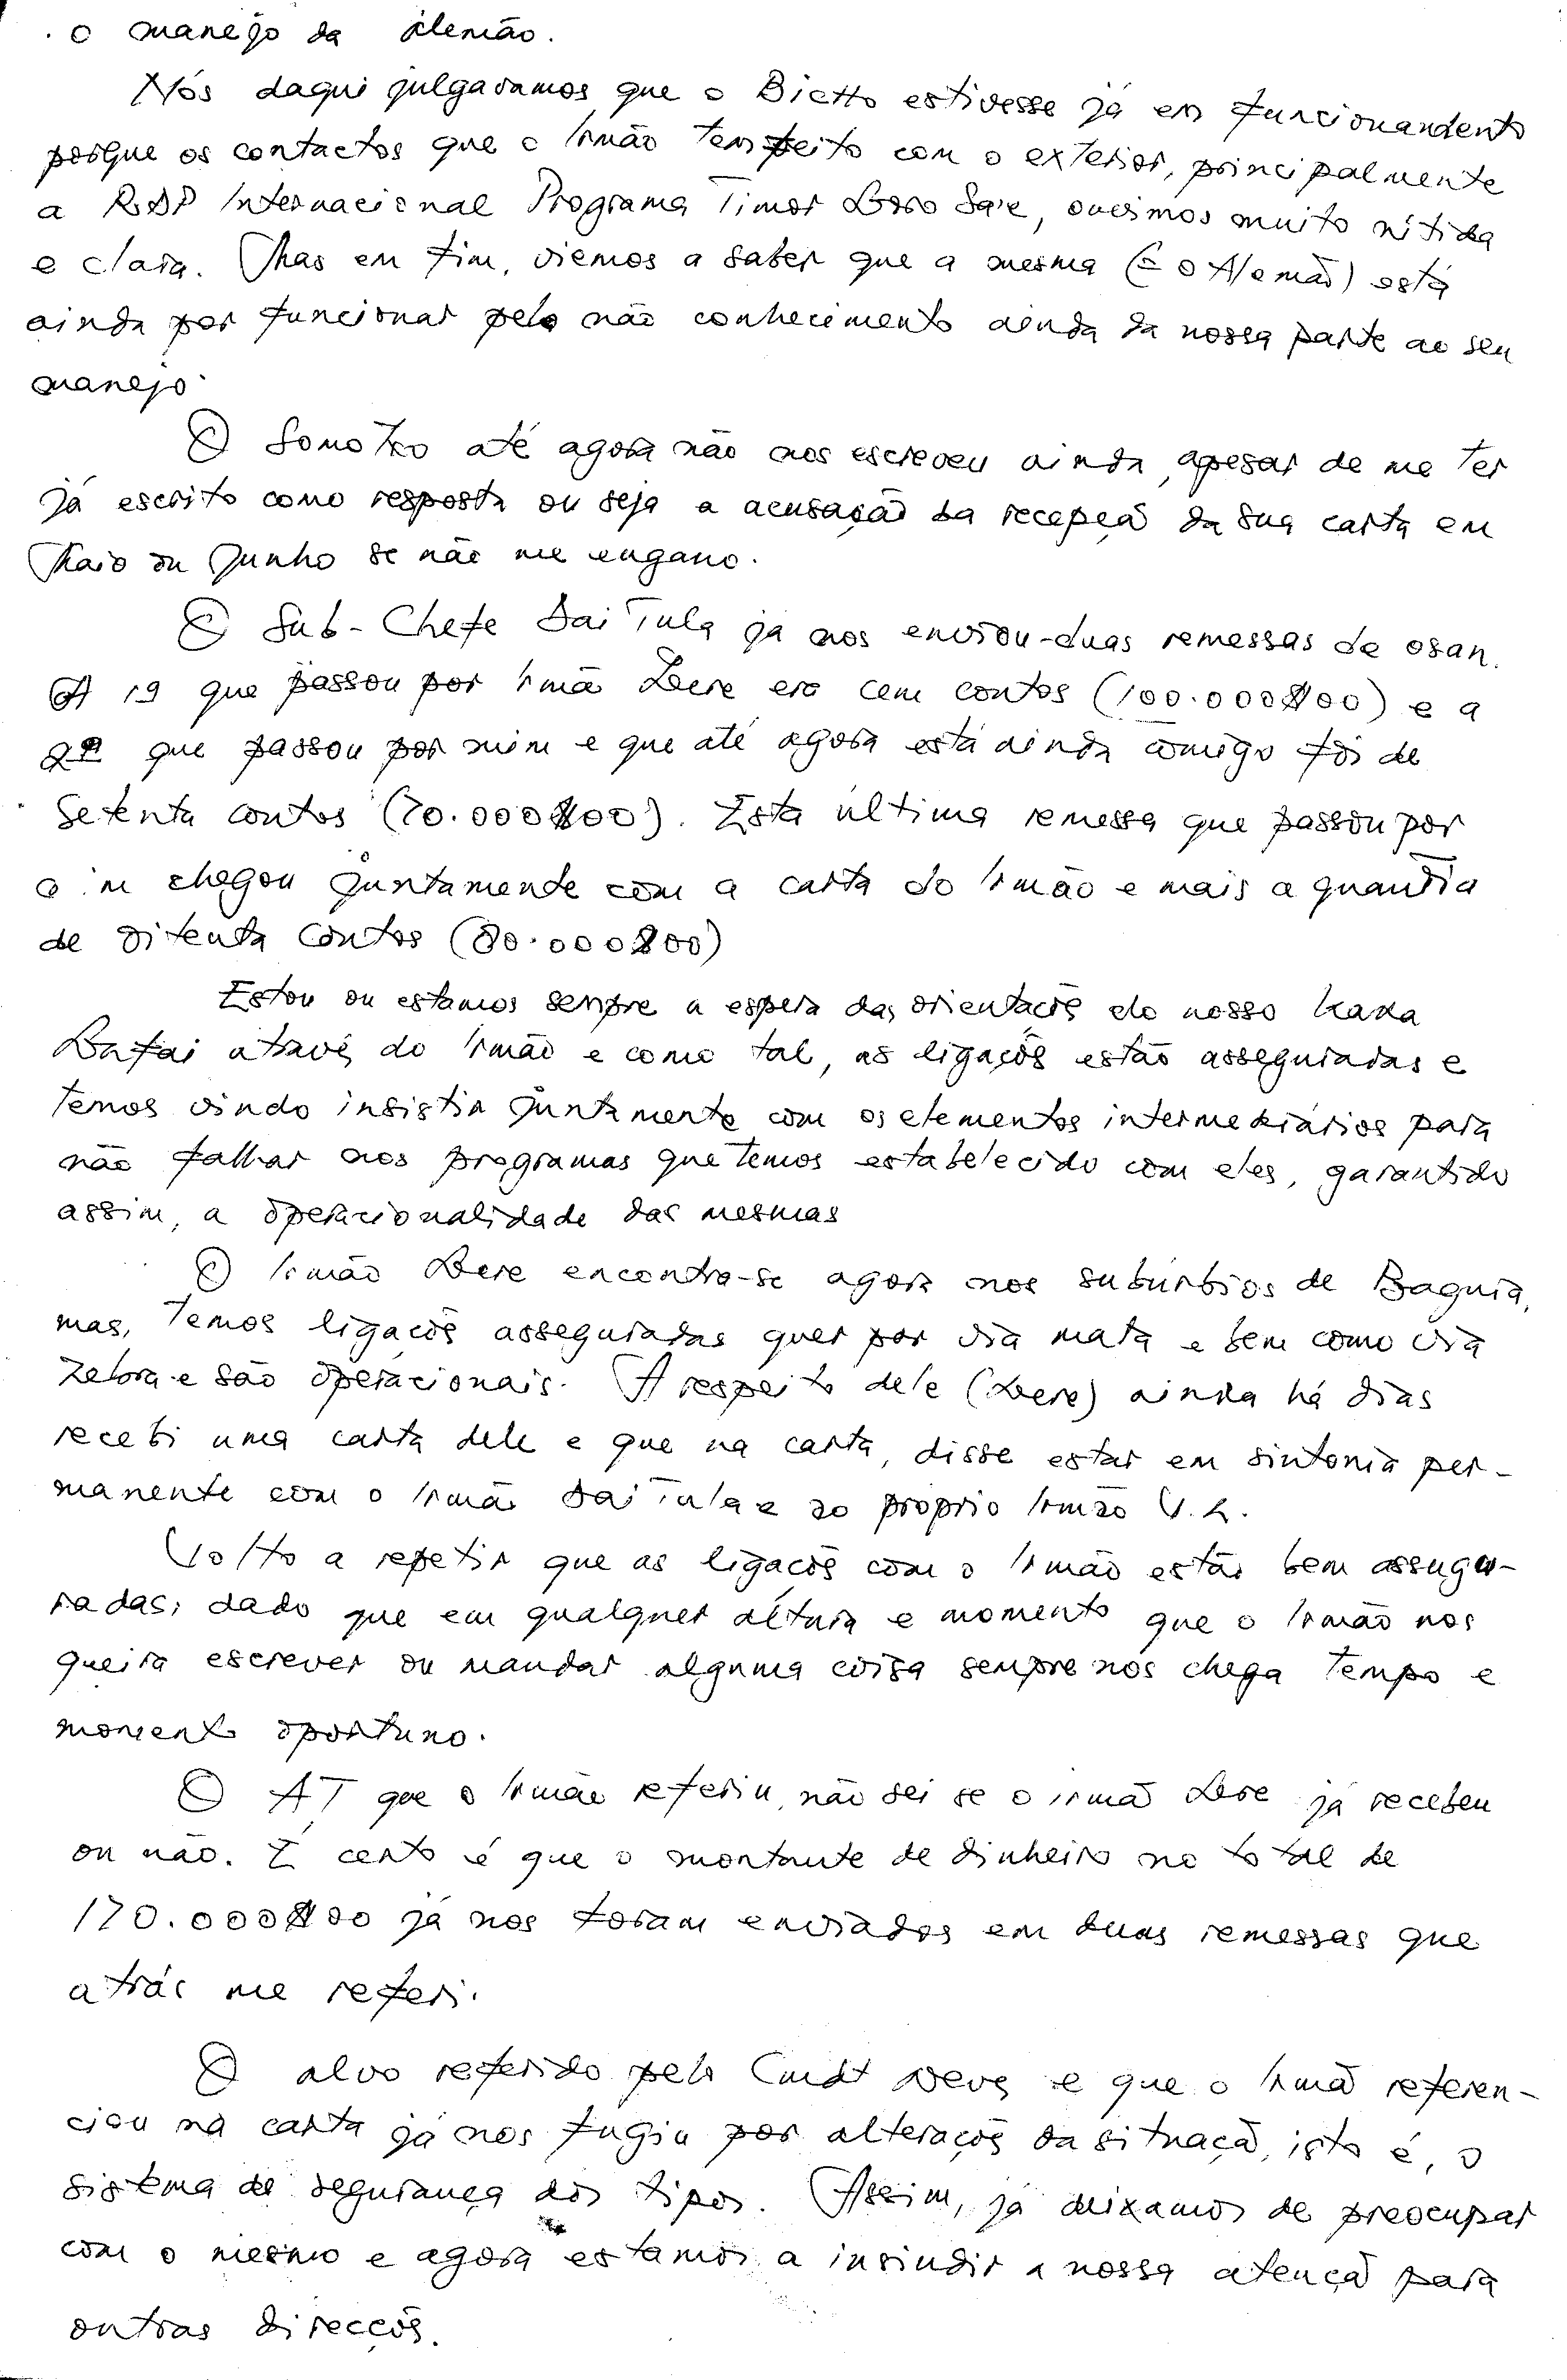 o manejo da alemão.
Nós daqui julgavamos que o Bietto estivesse já em funcionandento
porque os contactos que o Irmão tem feito com o exterior, principalmente
a RDP Internacional Programa Timor Loro Sa'e, ouvimos muito nitida
e clara. Mas em fim, viemos a saber que a mesma (é o Alemão) está
ainda por funcionar pelo não conhecimento ainda da nossa parte ao seu
manejo.
O Somotxo até agora não nos escreveu ainda, apesar de me ter
já escrito como resposta ou seja a acusação da recepçã da sua carta em
Maio ou Junho se não me engano.
O Sub-Chefe Dai Tula já nos enviou-duas remessas de osan.
A 1ª que passou por irmã Lere era cem contos (100.000$00) e a
2ª que passou por mim e que até agora está ainda comigo foi de
Setenta contos (70.000$00). Esta última remessa que passou por
mim chegou juntamente com a carta do Irmão e mais a quantia
de oitenta contos (80.000$00)
Estou ou estamos sempre a espera das orientacõs do nosso kaxa
Bafai através do Irmão e como tal, as ligaçõs estão asseguradas e
temos vindo insistir juntamente com os elementos intermediários para
não falhar nos programas que temos estabelecido com eles, garantido
assim, a operacionalidade das mesmas
O Irmão Lere encontra-se agora nos subúrbios de Baguia,
mas, temos ligacõs asseguradas quer por via mata e bem como via
zebra e são operacionais. A respeito dele (Lere) ainda há dias
recebi uma carta dele e que na carta, disse estar em sintonia per-
manente com o Irmão Dai Tula e ao proprio Irmão V.L.
Volto a repetir que as ligacõs com o Irmão estão bem assugu-
radas, dado que em qualquer altura e momento que o Irmão nos
queira escrever ou mandar alguma coisa sempre nos chega tempo e
momento oportuno.
O AT que o Irmão referiu, não sei se o irmã Lere já recebeu
ou não. E certo é que o montante de dinheiro no total de
170.000$00 já nos foram enviados em duas remessas que
atrás me referi.
O alvo referido pelo Cmdt Neves e que o Irmã referen-
ciou na carta já nos fugiu por alteraçõs da situaçã, isto é, o
sistema de segurança dos tipos. Assim, já deixamos de preocupar
com o mesmo e agora estamos a insindir a nossa atençã para
outras direcçõs.